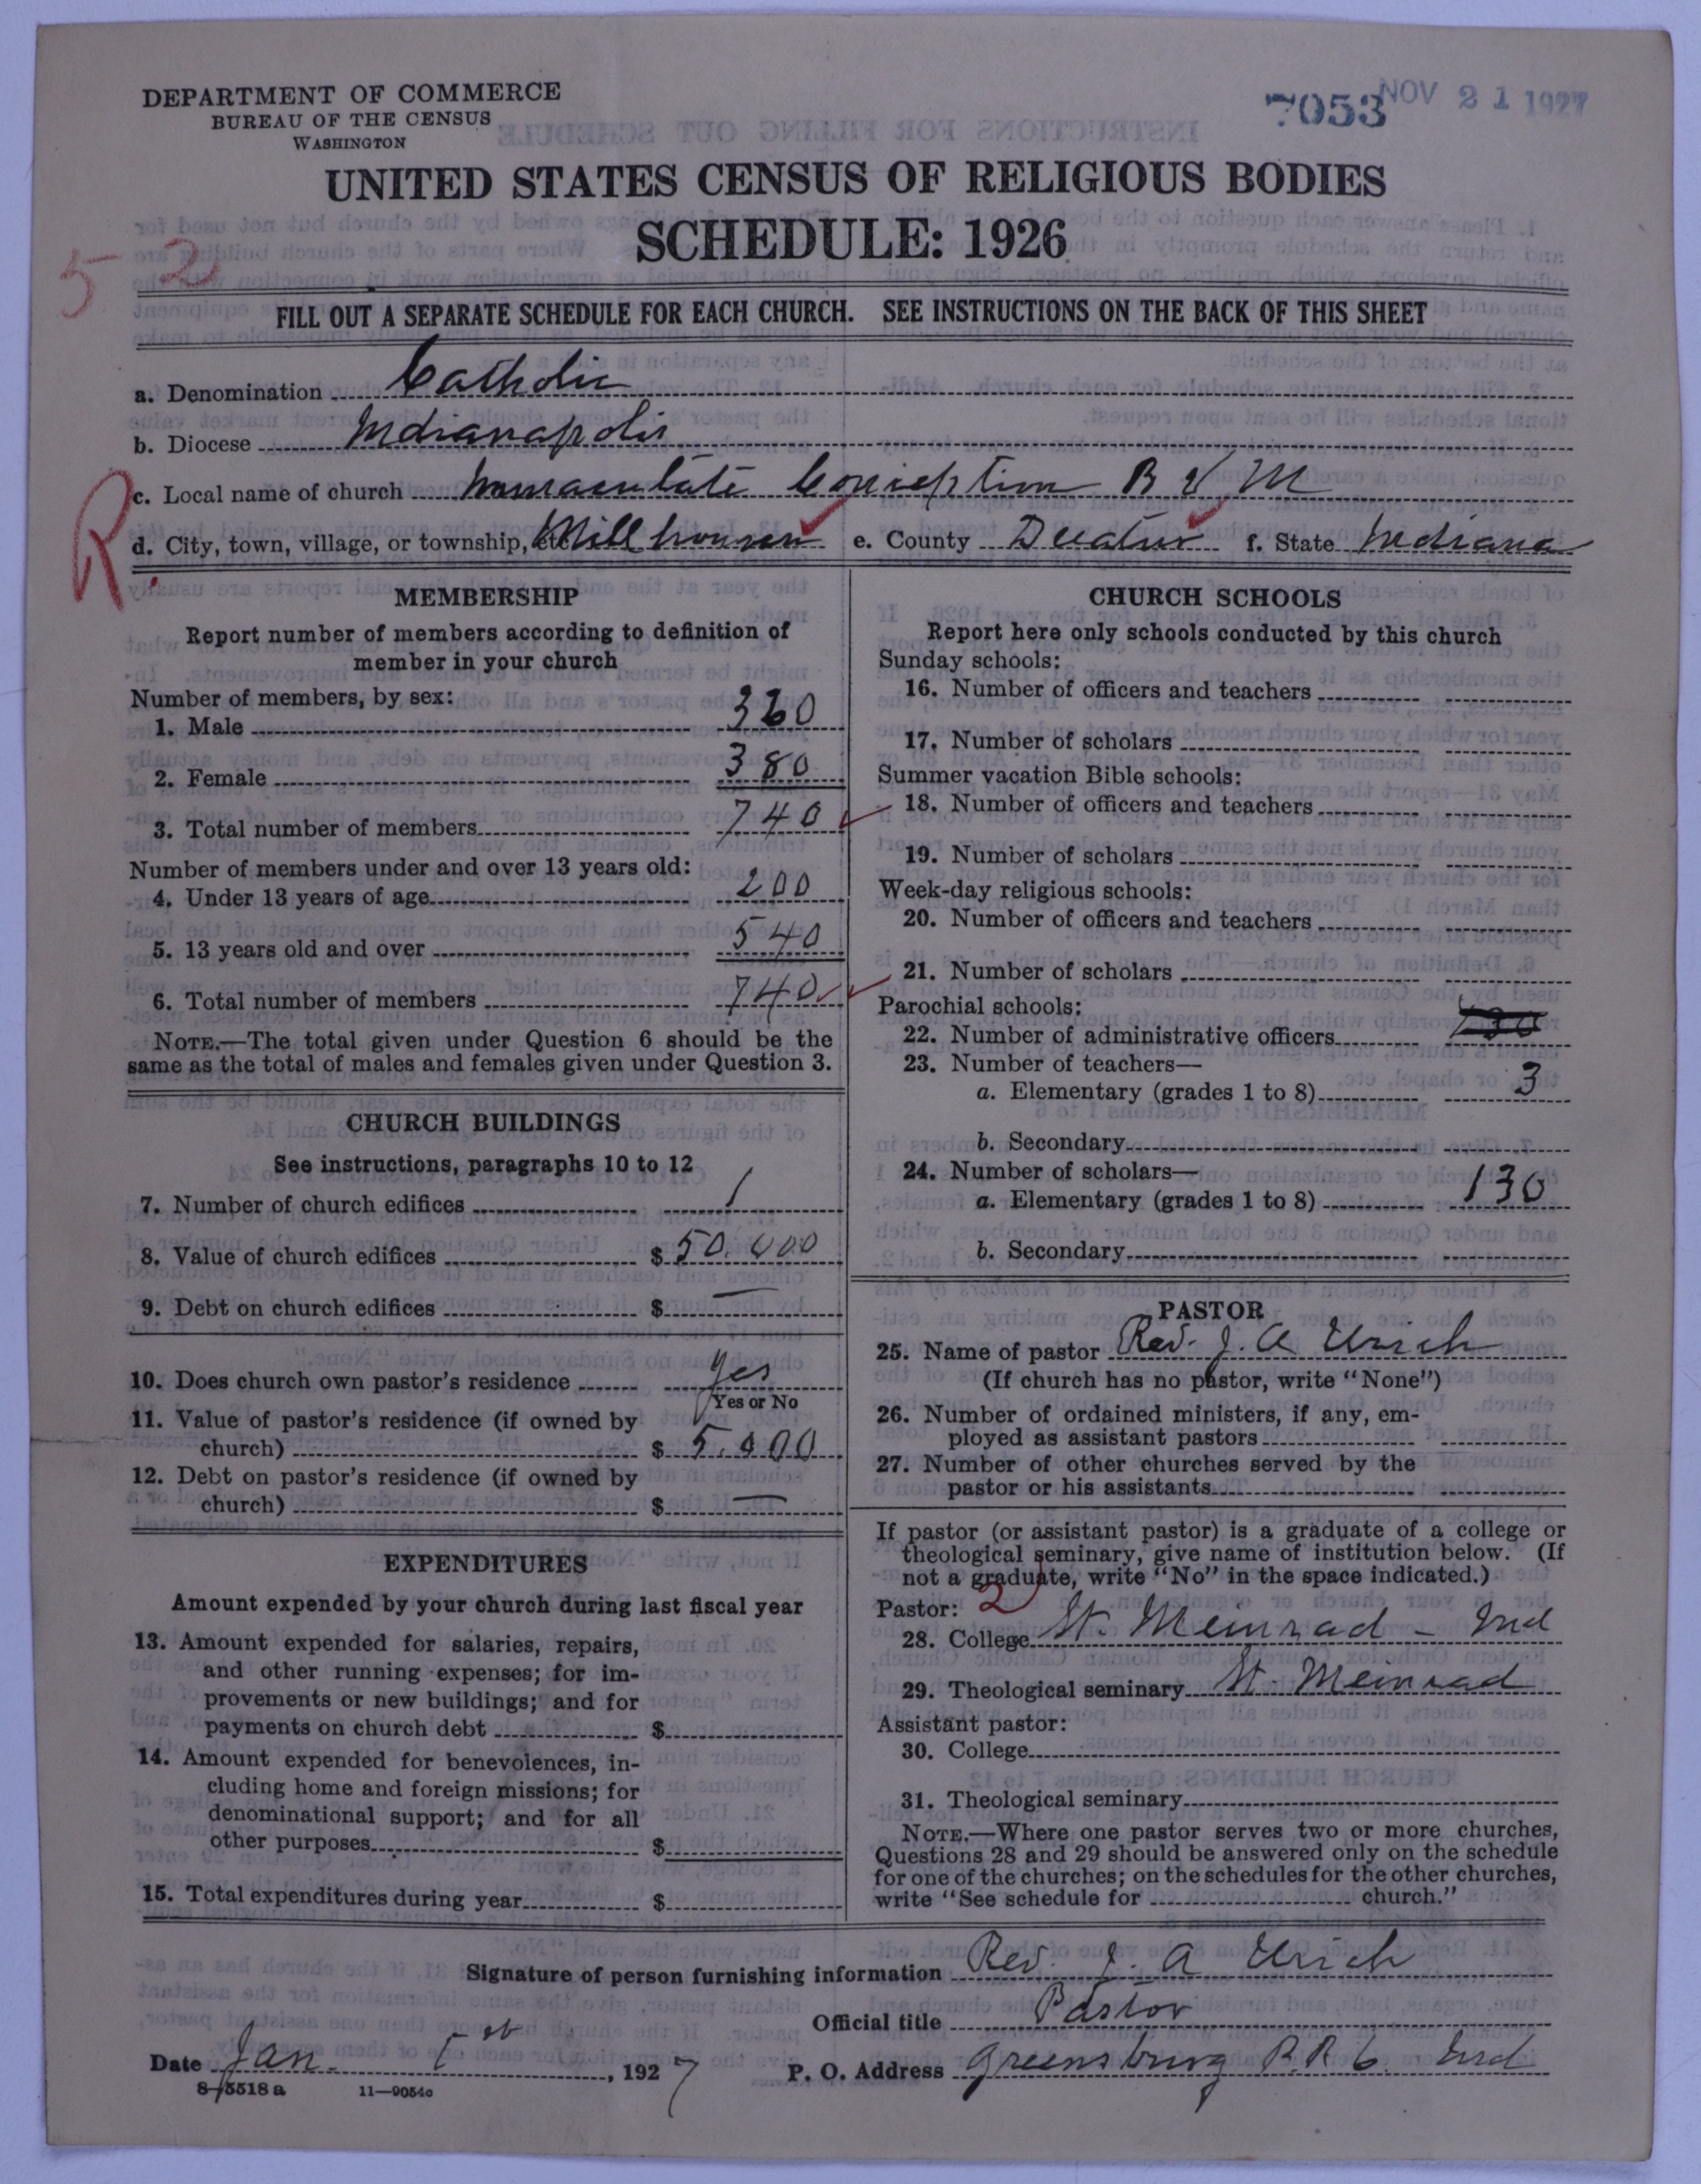 DEPARTMENT OF COMMERCE
BUREAU OF THE CENSUS
WASHINGTON
7053
NOV 21 1927
UNITED STATES CENSUS OF RELIGIOUS BODIES
SCHEDULE: 1926
52
FILL OUT A SEPARATE SCHEDULE FOR EACH CHURCH. SEE INSTRUCTIONS ON THE BACK OF THIS SHEET
a. Denomination Catholic
b. Diocese Indianapolis
R.
c. Local name of church Immaculate Conception B V M
d. City, town, village, or township, etc. Millhousen e. County Decatur f. State Indiana
MEMBERSHIP
Report number of members according to definition of
member in your church
Number of members, by sex:
1. Male 360
2. Female 380
3. Total number of members 740
Number of members under and over 13 years old:
4. Under 13 years of age 200
5. 13 years old and over 540
6. Total number of members 740
NOTE.—The total given under Question 6 should be the
same as the total of males and females given under Question 3.
CHURCH BUILDINGS
See instructions, paragraphs 10 to 12
7. Number of church edifices 1
8. Value of church edifices $ 50,000
9. Debt on church edifices $ —
10. Does church own pastor's residence Yes
Yes or No
11. Value of pastor's residence (if owned by
church) $ 5,000
12. Debt on pastor's residence (if owned by
church) $ —
EXPENDITURES
Amount expended by your church during last fiscal year
13. Amount expended for salaries, repairs,
and other running expenses; for im-
provements or new buildings; and for
payments on church debt $
14. Amount expended for benevolences, in-
cluding home and foreign missions; for
denominational support; and for all
other purposes $
15. Total expenditures during year $
CHURCH SCHOOLS
Report here only schools conducted by this church
Sunday schools:
16. Number of officers and teachers
17. Number of scholars
Summer vacation Bible schools:
18. Number of officers and teachers
19. Number of scholars
Week-day religious schools:
20. Number of officers and teachers
21. Number of scholars
Parochial schools:
22. Number of administrative officers 130
23. Number of teachers—
a. Elementary (grades 1 to 8) 3
b. Secondary
24. Number of scholars—
a. Elementary (grades 1 to 8) 130
b. Secondary
PASTOR
25. Name of pastor Rev. J. A Urich
(If church has no pastor, write "None")
26. Number of ordained ministers, if any, em-
ployed as assistant pastors
27. Number of other churches served by the
pastor or his assistants
If pastor (or assistant pastor) is a graduate of a college or
theological seminary, give name of institution below. (If
not a graduate, write "No" in the space indicated.)
Pastor: 2
28. College St. Meinrad – Ind
29. Theological seminary St Meinrad
Assistant pastor:
30. College
31. Theological seminary
NOTE.—Where one pastor serves two or more churches,
Questions 28 and 29 should be answered only on the schedule
for one of the churches; on the schedules for the other churches,
write "See schedule for church."
Signature of person furnishing information Rev. J. A Urich
Official title Pastor
Date Jan. , 1927 P. O. Address Greensburg R R 6 Ind
8-5518 a 11—9054c